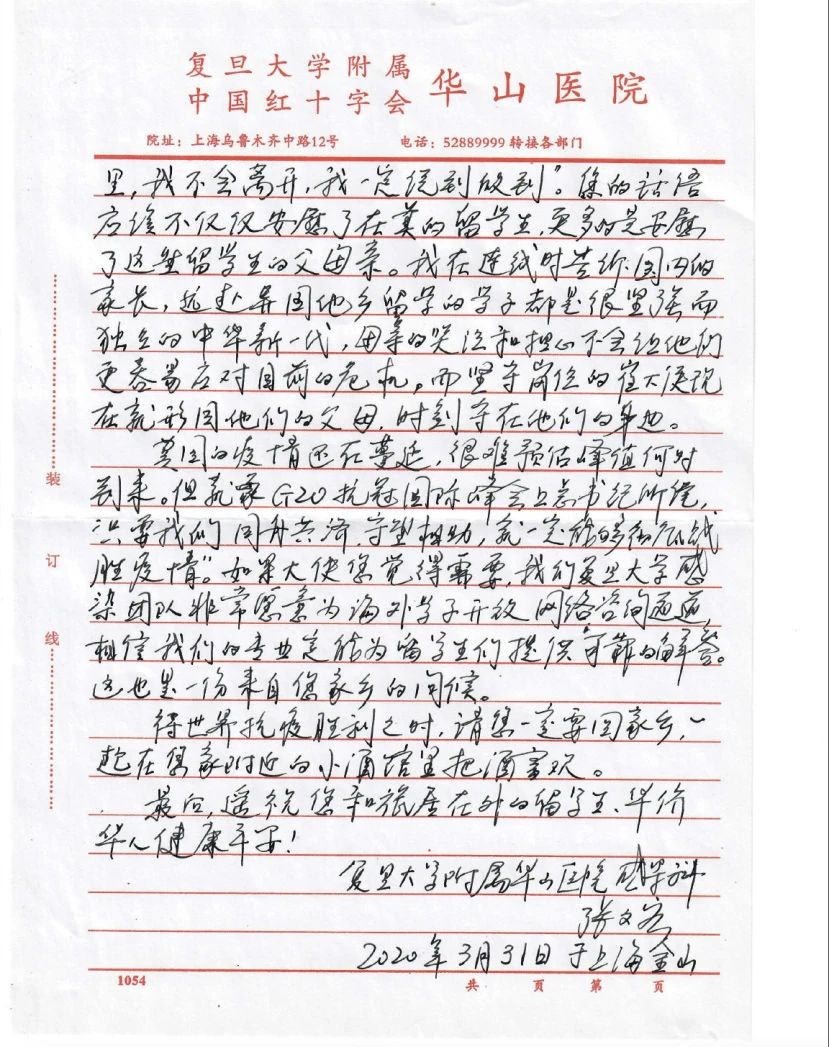 复旦大学附属
中国红十字会 华山医院
院址：上海乌鲁木齐中路12号 电话：52889999 转接各部门
里，我不会离开，我一定说到做到”。您的话语
应该不仅仅安慰了在英的留学生，更多的是安慰
了这些留学生的父母亲。我在连线时告诉国内的
家长，远赴异国他乡留学的学子都是很坚强而
独立的中华新一代，母亲的哭泣和担心不会让他们
更容易应对目前的危机。而坚守岗位的崔大使现
在就形同他们的父母，时刻守在他们的身边。
英国的疫情还在蔓延，很难预估峰值何时
到来。但就像G20抗冠国际峰会上总书记所说，
只要我们同舟共济、守望相助，就一定能够彻底战
胜疫情”。如果大使您觉得需要，我们复旦大学感
染团队非常愿意为海外学子开放网络咨询通道，
相信我们的专业定能为留学生们提供可靠的解答。
这也是一份来自您家乡的问候。
待世界抗疫胜利之时，请您一定要回家乡，一
起在您家附近的小酒馆里把酒言欢。
最后，遥祝您和旅居在外的留学生、华侨
华人健康平安！
复旦大学附属华山医院感染科
张文宏
2020年3月31日于上海金山
装
订
线
1054 共 页 第 页